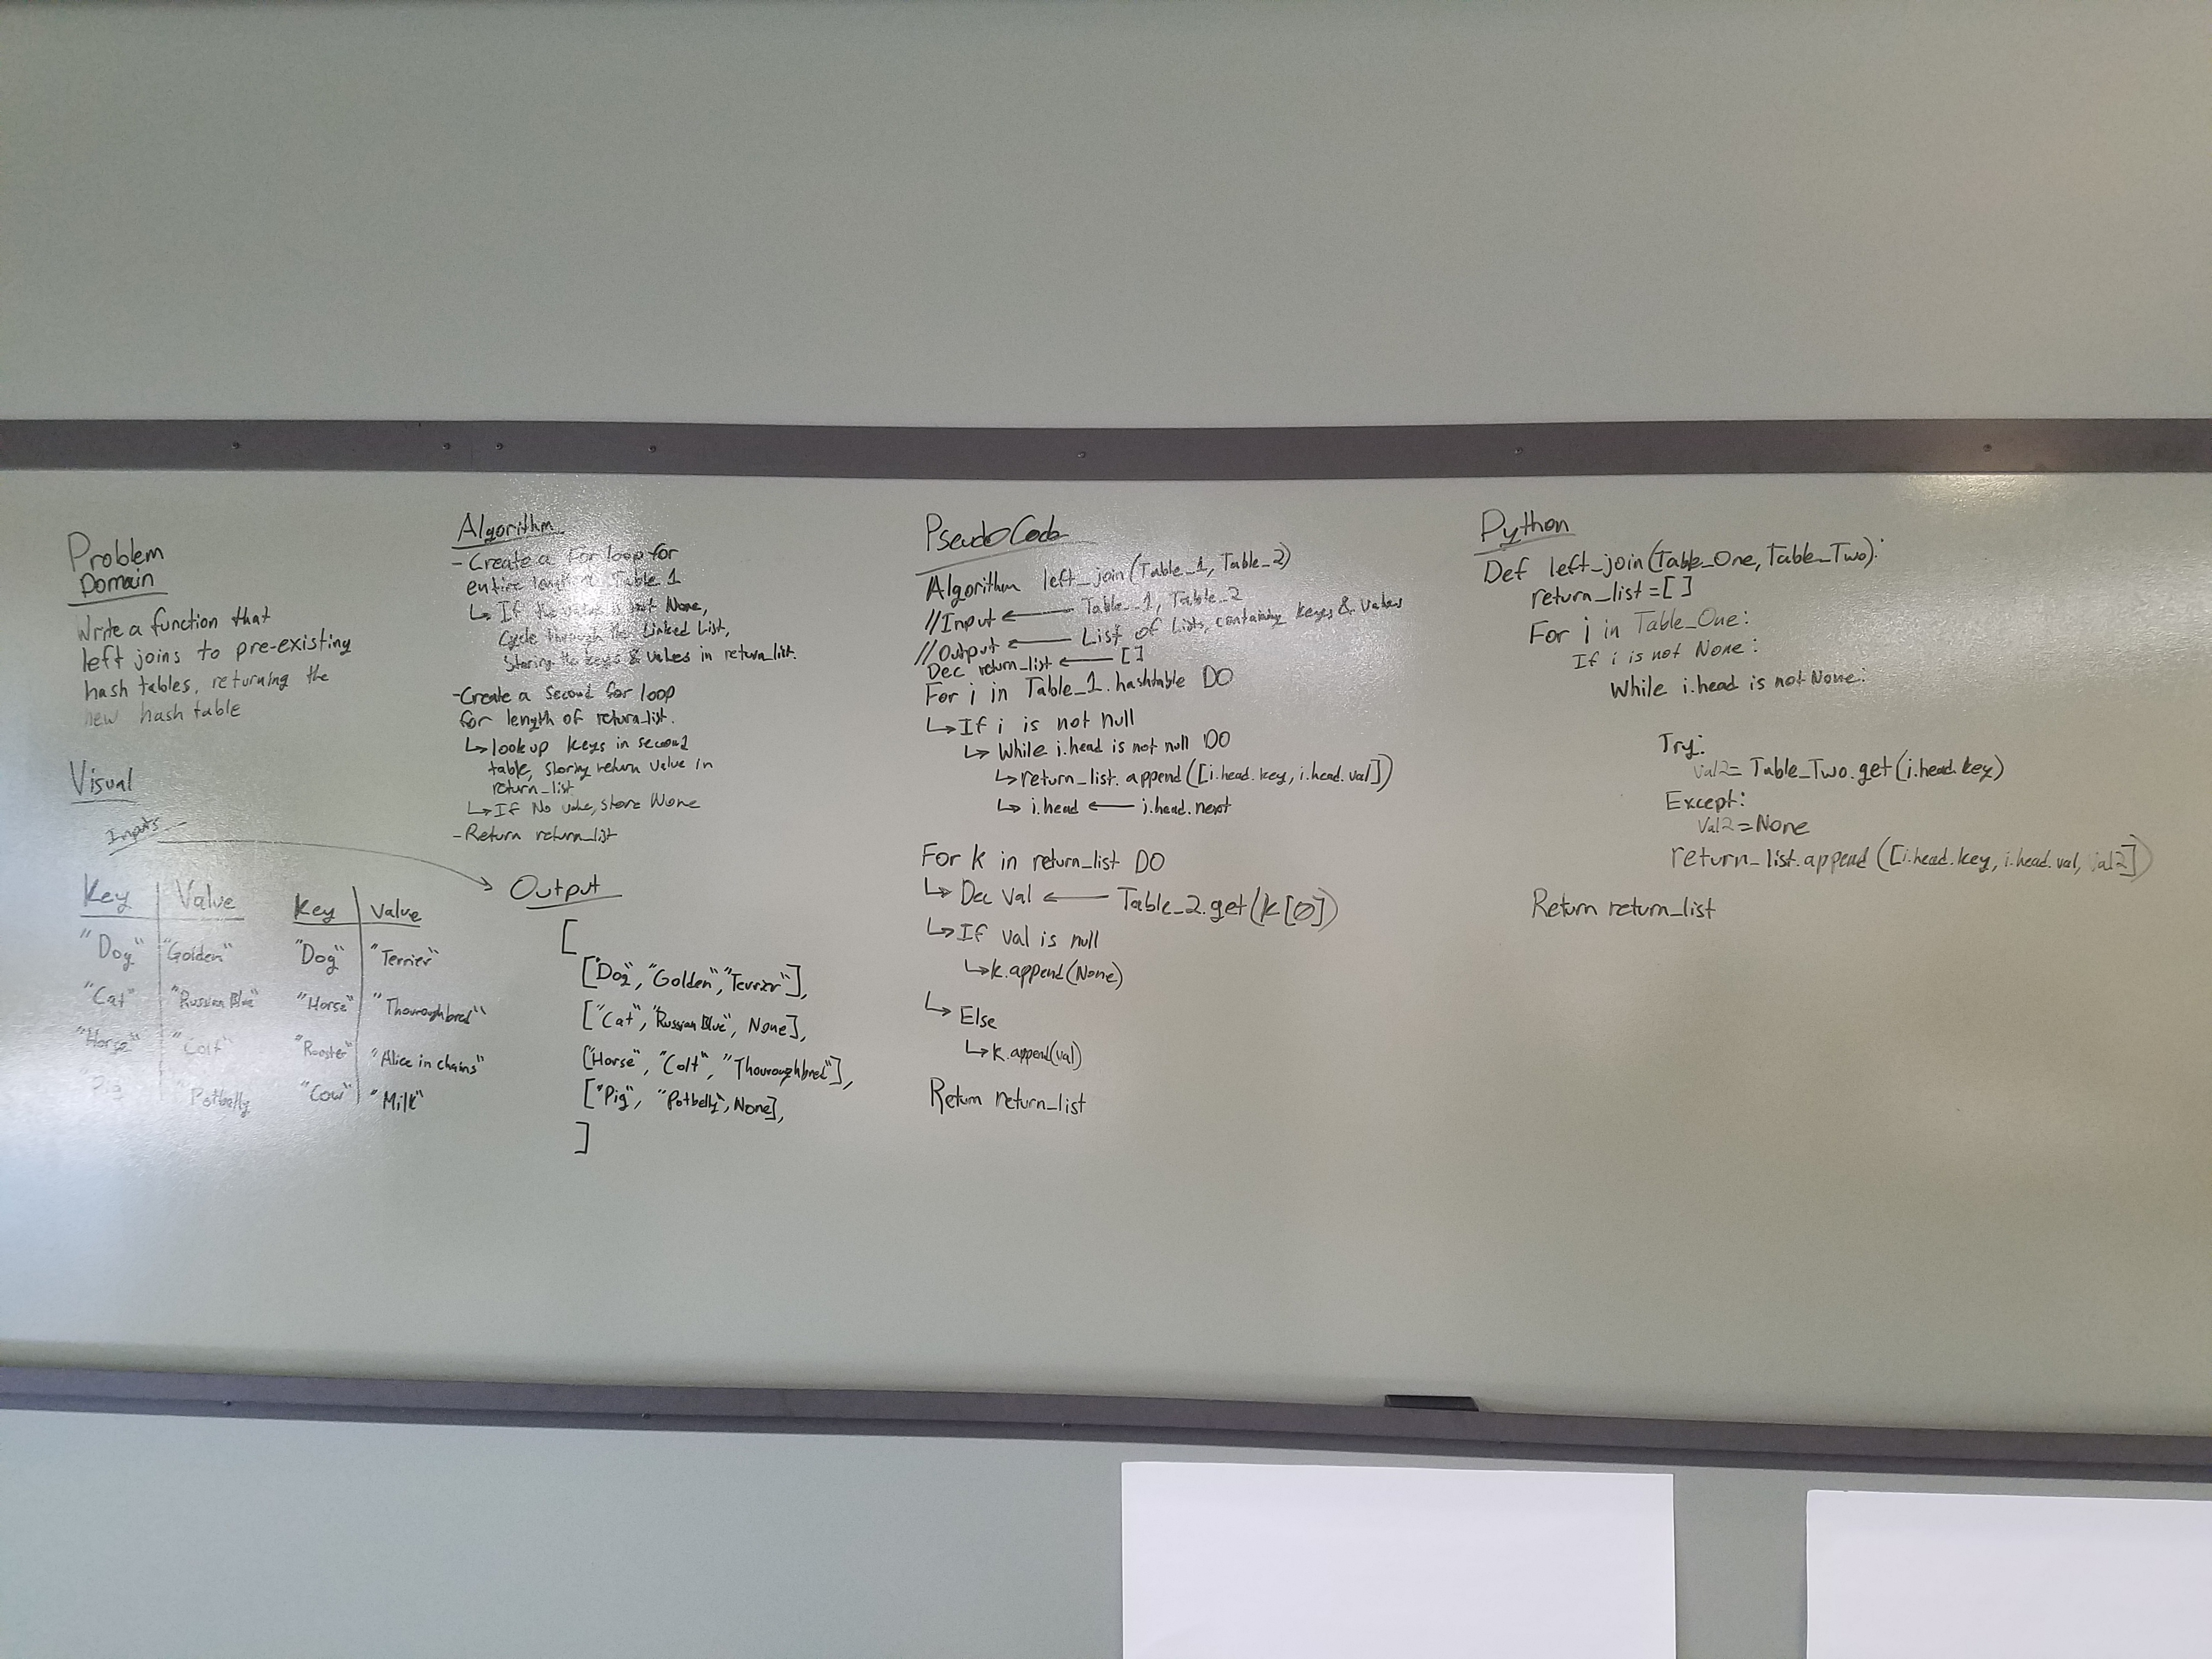 Problem
Domain
Write a function that
left joins to pre-existing
hash tables, returning the
new hash table
Visual
Inputs
Key | Value
"Dog" "Golden"
"Cat" "Russian Blue"
"Horse" "Colt"
"Pig" "Potbelly
Key | Value
"Dog" "Terrier"
"Horse" "Thouroughbred"
"Rooster" "Alice in chains"
"Cow" "Milk"
Algorithm
- Create a For loop for
entire length of Table 1
↳ If the value is not None,
Cycle through the Linked List,
Storing the keys & values in return_list.
- Create a second for loop
for length of return_list.
↳ lookup keys in second
table, storing return value in
return_list
↳ If No value, store None
- Return return_list
Output
[
["Dog", "Golden", "Terrier"],
["Cat", "Russian Blue", None],
["Horse", "Colt", "Thouroughbred"],
["Pig", "Potbelly", None],
]
PseudoCode
Algorithm left_join(Table_1, Table_2)
//Input ← Table_1, Table_2
//Output ← List of Lists, containing keyes & values
Dec return_list ← []
For i in Table_1.hashtable DO
↳ If i is not null
↳ While i.head is not null DO
↳ return_list.append([i.head.key, i.head.val])
↳ i.head ← i.head.next
For k in return_list DO
↳ Dec val ← Table_2.get(k[0])
↳ If val is null
↳ k.append(None)
↳ Else
↳ k.append(val)
Return return_list
Python
Def left_join(Table_One, Table_Two):
return_list = []
For i in Table_One:
If i is not None:
While i.head is not None:
Try:
val2 = Table_Two.get(i.head.key)
Except:
val2 = None
return_list.append([i.head.key, i.head.val, val2])
Return return_list